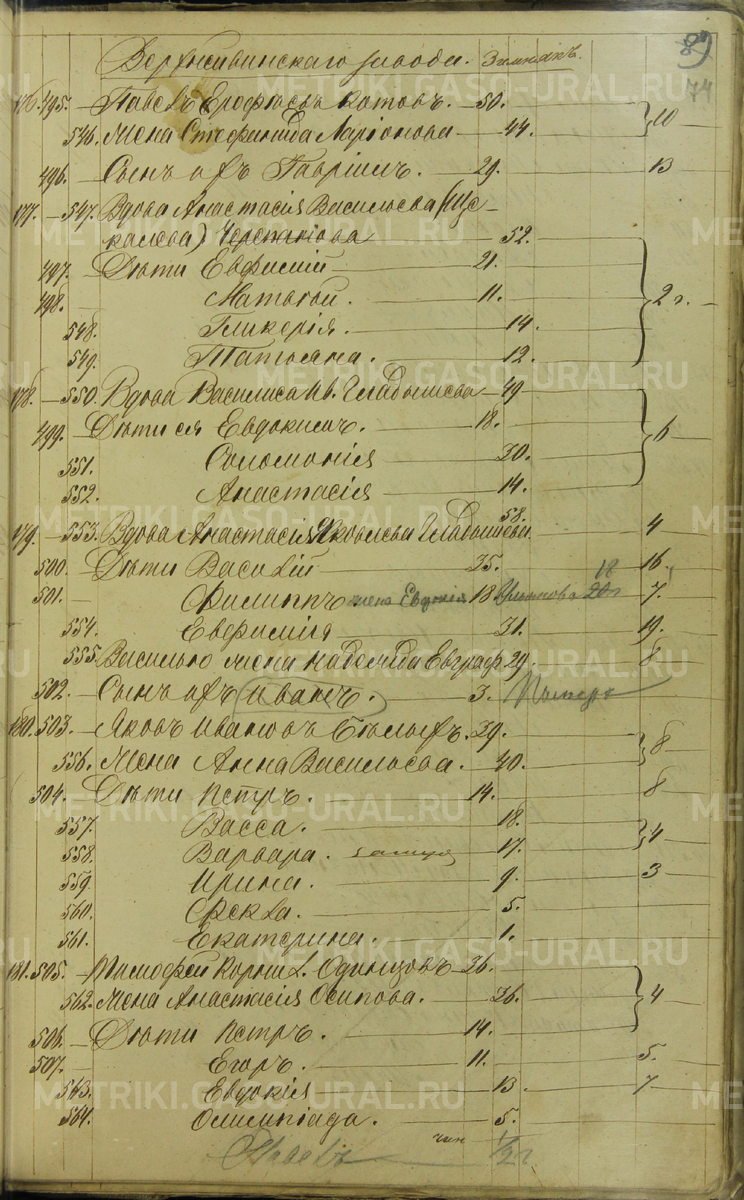 89
74
Верхнейвинскаго завода. Зимнякъ.
176. 495. Павелъ Ерофѣевъ Котовъ. 50.
546. Жена Стефанида Ларіонова 44. 10
496. Сынъ ихъ Гавріилъ. 29. 13
177. 547. Вдова Анастасія Васильева (Ще-
калева) Черепанова 52.
497. Дѣти Евфимій 21.
498. Матѳей. 11. 2 г.
548. Гликерія. 14.
549. Татьяна. 12.
178. 550. Вдова Василиса Ив. Гладышева 49
499. Дѣти ея Евдокимъ. 18. 6
551. Соломонія 20.
552. Анастасія 14.
179. 553. Вдова Анастасія Яковлева Гладышева 58. 4
500. Дѣти Василій 35. 16.
501. Филиппъ жена Евдокія 18 18 20 7.
554. Евфимія 31. 19.
555. Василью жена Надежда Евграф. 29. 8
502. Сынъ ихъ Иванъ. 3. Померъ
180. 503. Яковъ Ивановъ Бѣлыхъ. 39.
556. Жена Анна Васильева. 40. 8
504. Дѣти Петръ. 14. 8
557. Васса. 18.
558. Варвара. замуж 17. 4
559. Ирина. 9. 3
560. Фекла. 5.
561. Екатерина. 1.
181. 505. Тимофей Корнил. Одинцовъ 36.
562. Жена Анастасія Осипова. 36. 4
506. Дѣти Петръ. 14.
507. Егоръ. 11. 5.
563. Евдокія 13. 7
564. Олимпіада. 5.
Павелъ 1/2 г
METRIKI.GASO-URAL.RU